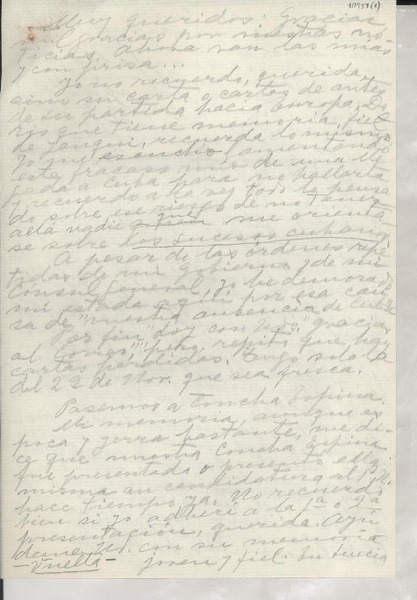 10957(1)
Muy queridos: Gracias
mil gracias por vuestras no-
ticias. Ahora van las mías
y con prisa...
Yo no recuerdo, querida,
sin su carta o cartas de antes
de su partida hacia Europa. Do-
ris que tiene memoria, fiel
de yanqui, recuerda lo mismo.
Yo que escucho, aumentando
este fracaso mío de una lle-
gada a Cuba para no hallarla
y recuerdo a la vez todo lo pensa-
do sobre ese riesgo de no tener
allá nadie que me orienta-
se sobre los sucesos cubanos.
A pesar de las órdenes repe-
tidas de mi Gobierno y de mi
Cónsul General, yo he demorado
mi estada aquí por esa cau-
sa de "vuestra ausencia de Cuba".
"Por fin" doy con Uds., gracias
al Señor, pero repito que hay
cartas perdidas. Tengo solo la
del 22 de Nov. que sea fresca.
Pasemos a Concha Espina.
Mi memoria, aunque es
poca y yerra bastante, me di-
ce que nuestra Concha Espina
fue presentada o presentó ella
misma su candidatura al P. N.
hace tiempo ya. No recuerdo
bien si yo adherí a la 1a o la 2a
presentación, querida. Ayú-
deme Ud. con su memoria
—Vuelta— joven y fiel. Su Lucía